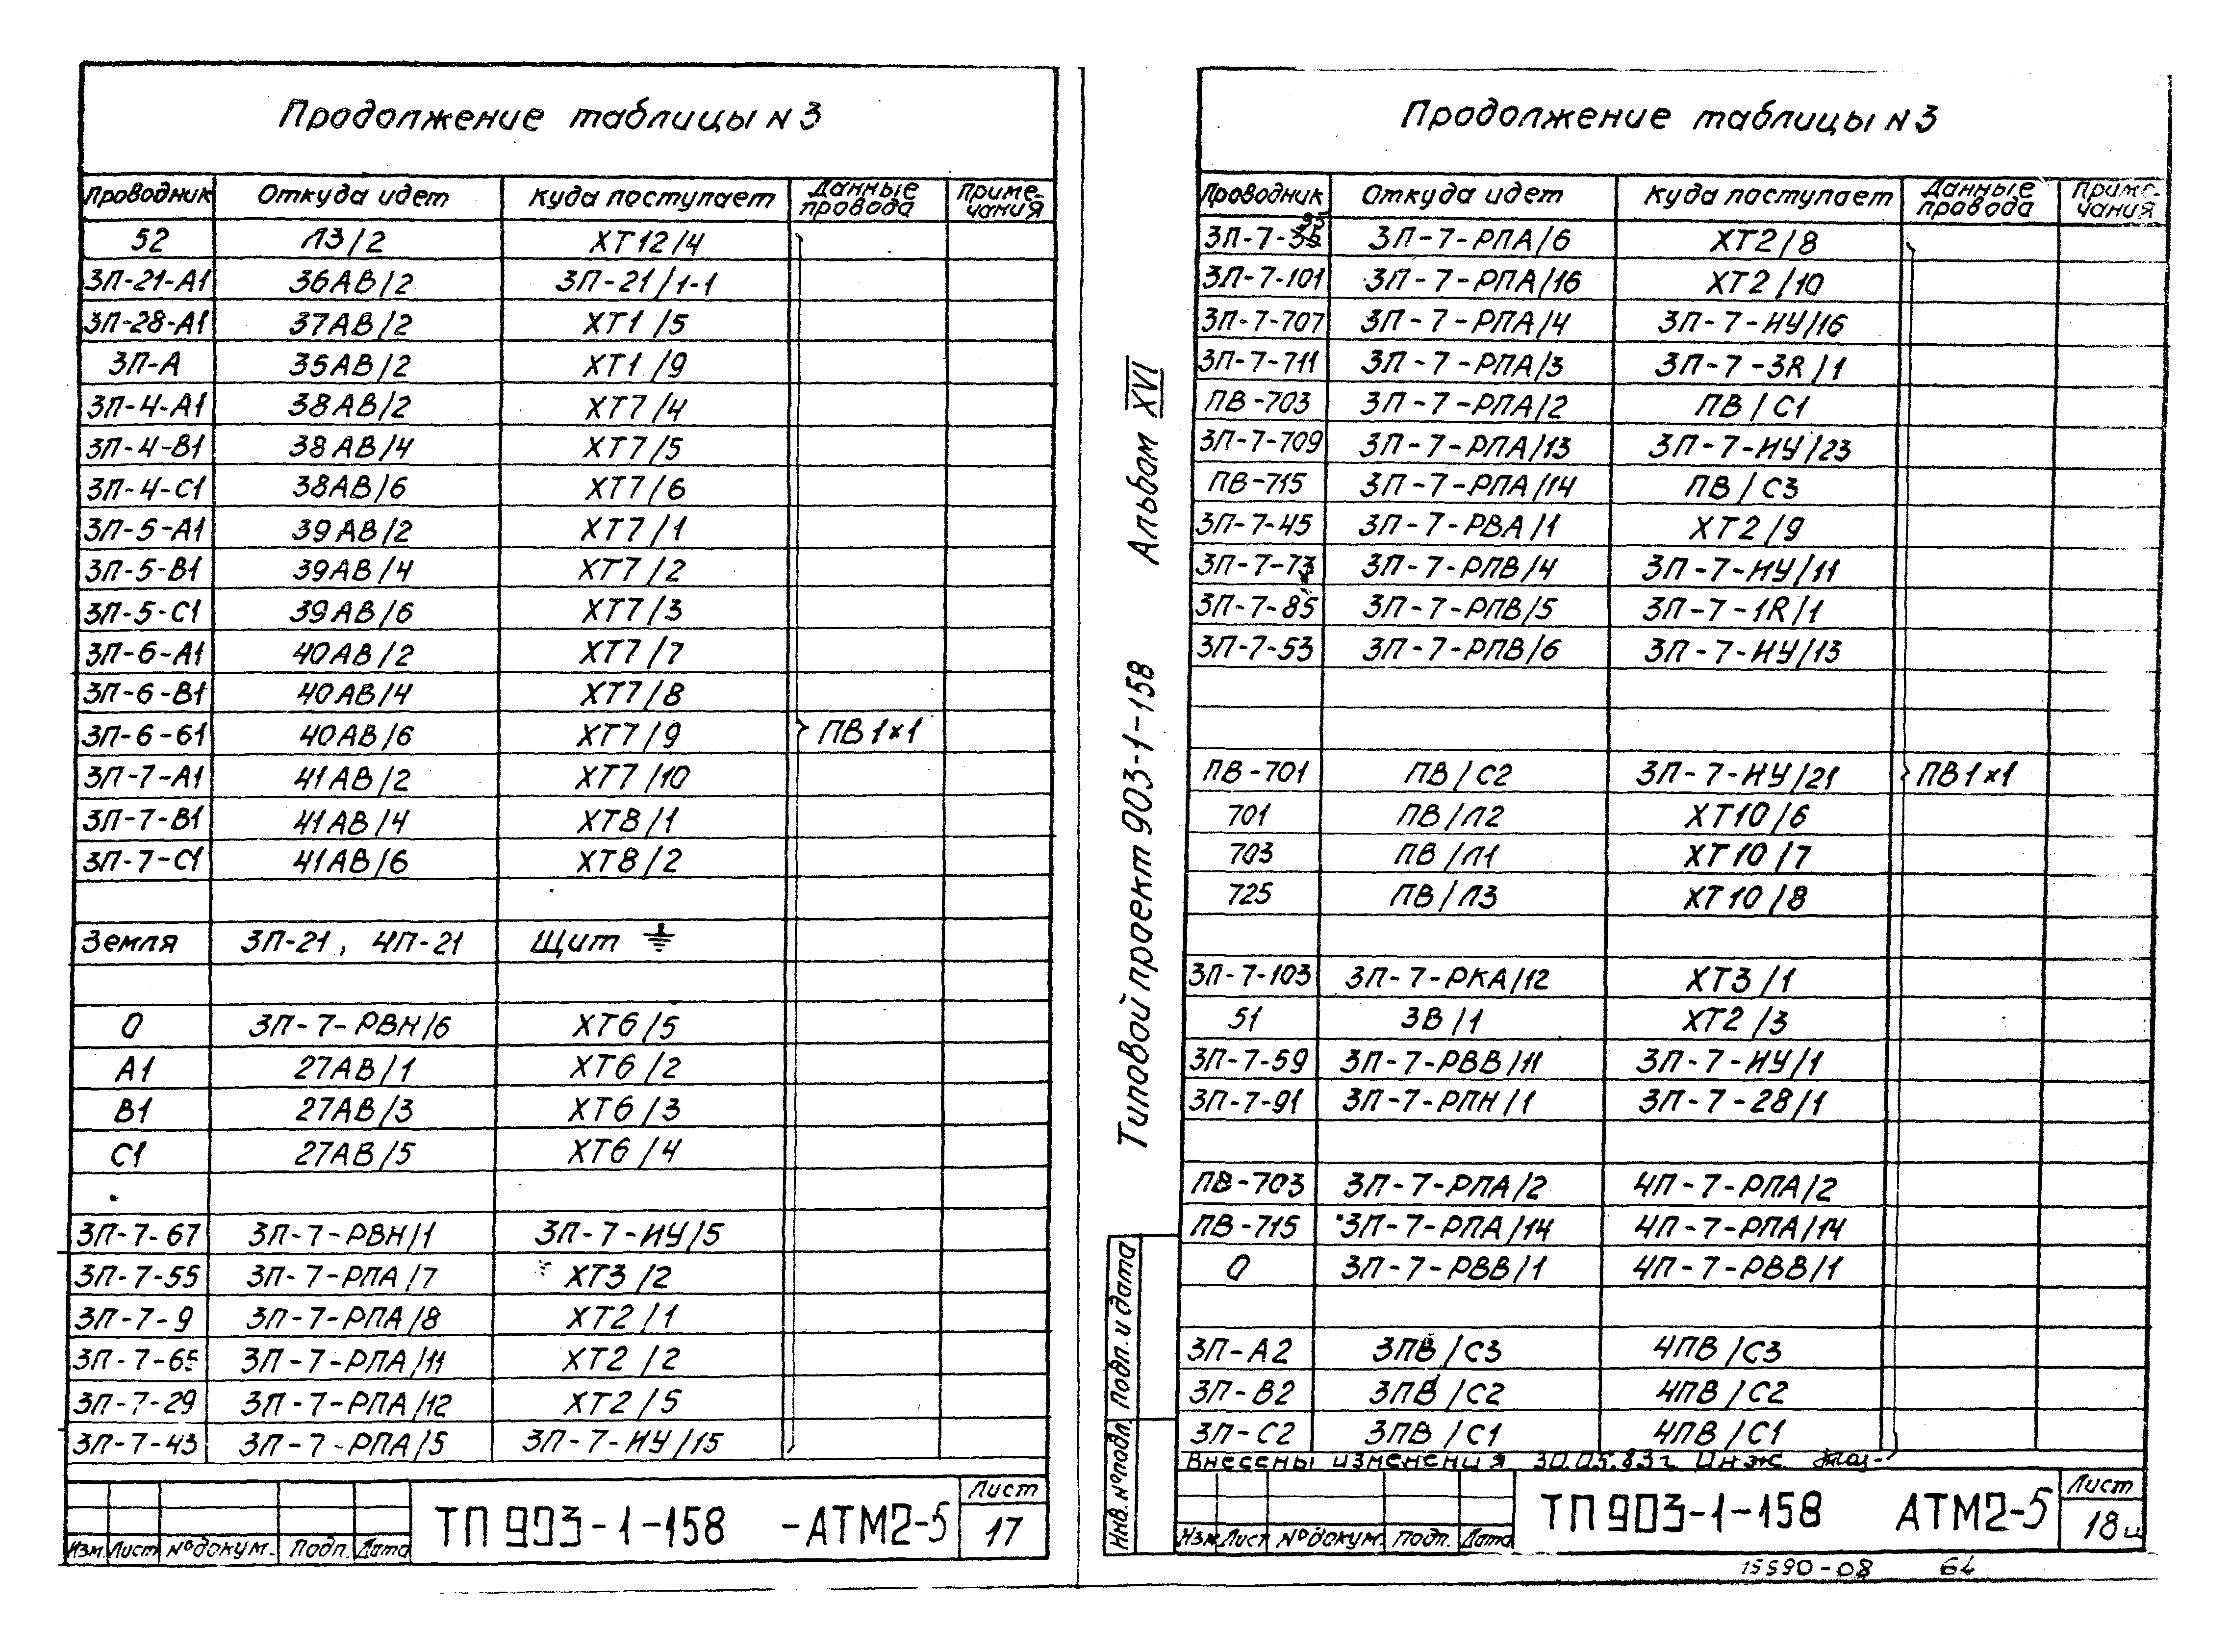 Продолжение таблицы N 3
Проводник Откуда идет Куда поступает Данные провода Примечания
52 Л3/2 ХТ12/4
3П-21-А1 36АВ/2 3П-21/1-1
3П-28-А1 37АВ/2 ХТ1/5
3П-А 35АВ/2 ХТ1/9
3П-4-А1 38АВ/2 ХТ7/4
3П-4-В1 38АВ/4 ХТ7/5
3П-4-С1 38АВ/6 ХТ7/6
3П-5-А1 39АВ/2 ХТ7/1
3П-5-В1 39АВ/4 ХТ7/2
3П-5-С1 39АВ/6 ХТ7/3
3П-6-А1 40АВ/2 ХТ7/7
3П-6-В1 40АВ/4 ХТ7/8
3П-6-61 40АВ/6 ХТ7/9 ПВ 1×1
3П-7-А1 41АВ/2 ХТ7/10
3П-7-В1 41АВ/4 ХТ8/1
3П-7-С1 41АВ/6 ХТ8/2
Земля 3П-21, 4П-21 Щит ⏚
0 3П-7-РВН/6 ХТ6/5
А1 27АВ/1 ХТ6/2
В1 27АВ/3 ХТ6/3
С1 27АВ/5 ХТ6/4
3П-7-67 3П-7-РВН/1 3П-7-ИУ/5
3П-7-55 3П-7-РПА/7 ХТ3/2
3П-7-9 3П-7-РПА/8 ХТ2/1
3П-7-65 3П-7-РПА/11 ХТ2/2
3П-7-29 3П-7-РПА/12 ХТ2/5
3П-7-43 3П-7-РПА/5 3П-7-ИУ/15
Изм. Лист № докум. Подп. Дата
ТП 903-1-158 -АТМ2-5
Лист
17
Альбом XVI
Типовой проект 903-1-158
Подп. и дата
Инв. № подл.
Продолжение таблицы N 3
Проводник Откуда идет Куда поступает Данные провода Примечания
3П-7-95 3П-7-РПА/6 ХТ2/8
3П-7-101 3П-7-РПА/16 ХТ2/10
3П-7-707 3П-7-РПА/4 3П-7-ИУ/16
3П-7-711 3П-7-РПА/3 3П-7-3R/1
ПВ-703 3П-7-РПА/2 ПВ/С1
3П-7-709 3П-7-РПА/13 3П-7-ИУ/23
ПВ-715 3П-7-РПА/14 ПВ/С3
3П-7-45 3П-7-РВА/1 ХТ2/9
3П-7-73 3П-7-РПВ/4 3П-7-ИУ/11
3П-7-85 3П-7-РПВ/5 3П-7-1R/1
3П-7-53 3П-7-РПВ/6 3П-7-ИУ/13
ПВ-701 ПВ/С2 3П-7-ИУ/21 ПВ 1×1
701 ПВ/Л2 ХТ10/6
703 ПВ/Л1 ХТ10/7
725 ПВ/Л3 ХТ10/8
3П-7-103 3П-7-РКА/12 ХТ3/1
51 3В/1 ХТ2/3
3П-7-59 3П-7-РВВ/11 3П-7-ИУ/1
3П-7-91 3П-7-РПН/1 3П-7-28/1
ПВ-703 3П-7-РПА/2 4П-7-РПА/2
ПВ-715 3П-7-РПА/14 4П-7-РПА/14
0 3П-7-РВВ/1 4П-7-РВВ/1
3П-А2 3ПВ/С3 4ПВ/С3
3П-В2 3ПВ/С2 4ПВ/С2
3П-С2 3ПВ/С1 4ПВ/С1
Внесены изменения 30.05.83г Инж.
Изм. Лист № докум. Подп. Дата
ТП 903-1-158 АТМ2-5
Лист
18и
15590-08 64